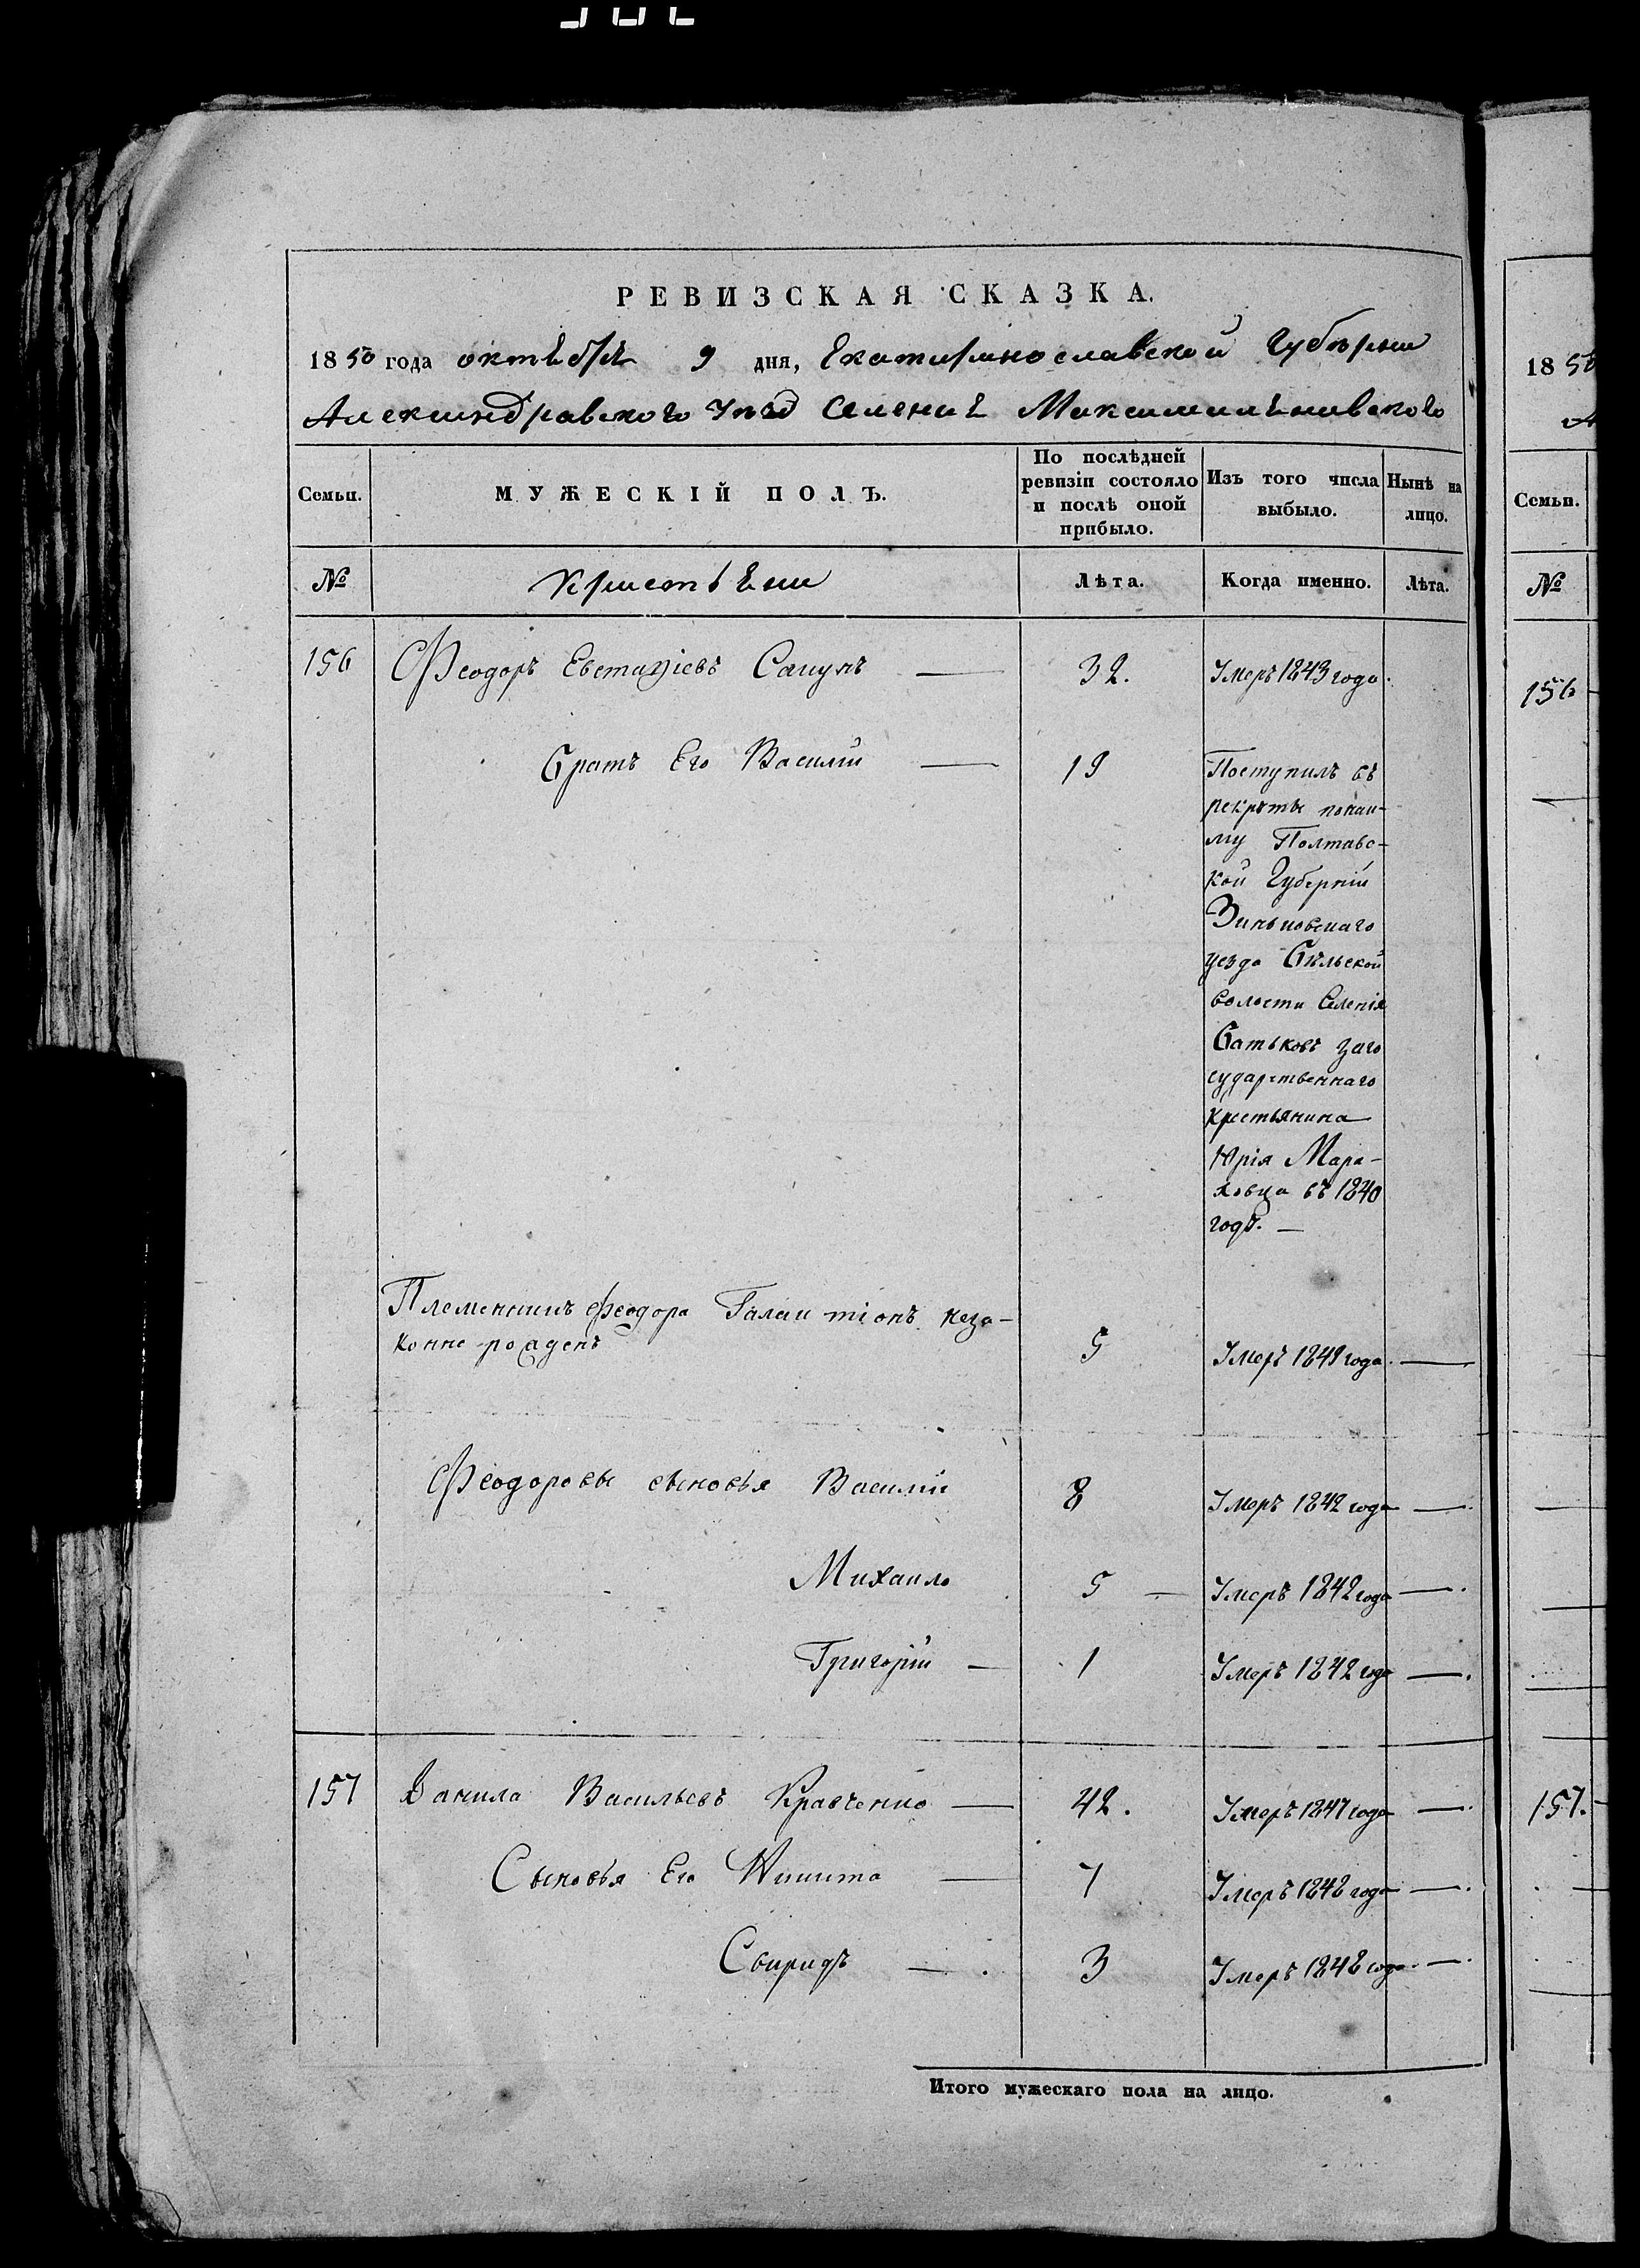 РЕВИЗСКАЯ СКАЗКА.
1850 года октября 9 дня, Екатериносլавской Губернии
Александравского уезд Селения Максимиляновского
Семьи.
МУЖЕСКІЙ ПОЛЪ.
По послѣдней
ревизіи состояло
и послѣ оной
прибыло.
Изъ того числа
выбыло.
Нынѣ на
лицо.
№
Крестяни
Лѣта.
Когда именно.
Лѣта.
156
Феодоръ Евстафіевъ Сапунъ
32.
Умеръ 1843 года.
Братъ Его Василій
19
Поступилъ въ
рекруты понаи-
му Полтавс-
кой Губерніи
Зиньковскаго
уезда Бѣльской
волости Селенія
Батьковъ заго
сударственнаго
крестьянина
Юрія Мара-
ховца въ 1840
годѣ.
Племенникъ Феодора Галактіонъ неза-
конно рожденъ
5
Умеръ 1849 года.
Феодоровы сыновья Василій
8
Умеръ 1842 года
Михаило
5
Умеръ 1842 года
Григорій
1
Умеръ 1842 года
157
Данила Васильевъ Кравченко
42.
Умеръ 1847 года
Сыновья Его Никита
7
Умеръ 1842 года
Свиридъ
3
Умеръ 1842 года.
Итого мужескаго пола на лицо.
1850
А
Семьи.
№
156
157.